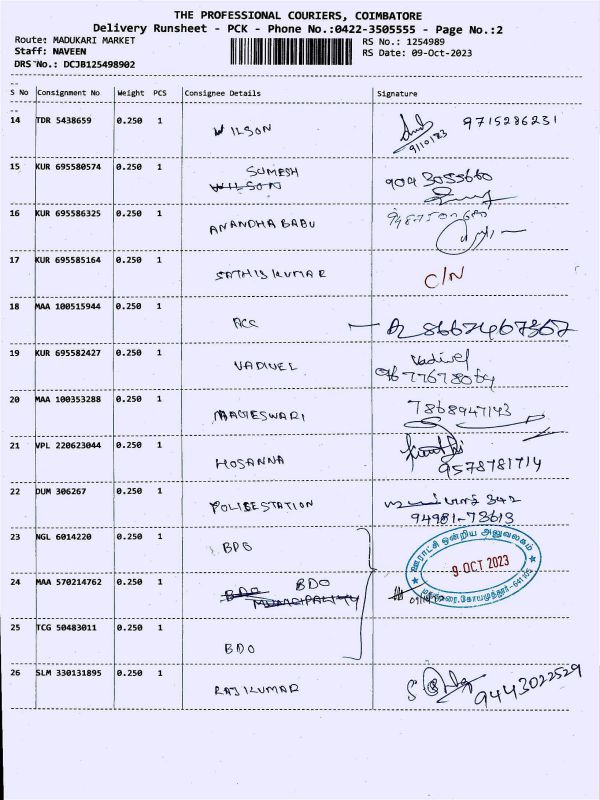 THE PROFESSIONAL COURIERS, COIMBATORE
Delivery Runsheet - PCK - Phone No.:0422-3505555 - Page No.:2
Route: MADUKARI MARKET
RS No.: 1254989
Staff: NAVEEN
RS Date: 09-Oct-2023
DRS No.: DCJB125498902
S No Consignment No Weight PCS Consignee Details Signature
14 TDR 5438659 0.250 1 WILSON 9715286231
9/10/23
15 KUR 695580574 0.250 1 SUMESH
WILSON
16 KUR 695586325 0.250 1 ANANDHA BABU
17 KUR 695585164 0.250 1 SATHISKUMAR C/N
18 MAA 100515944 0.250 1 ACC 8667467367
19 KUR 695582427 0.250 1 VADIVEL Vadivel
20 MAA 100353288 0.250 1 MAGIESWARI 7868947143
21 VPL 220623044 0.250 1 HOSANNA 9578781714
22 DUM 306267 0.250 1 POLICESTATION 342
94981-73613
23 NGL 6014220 0.250 1 BDO
ஊராட்சி ஒன்றிய அலுவலகம்
9 OCT 2023
மதுக்கரை, கோயமுத்தூர்-641 105
24 MAA 570214762 0.250 1 BDO BDO
MUNICIPALITY
25 TCG 50483011 0.250 1 BDO
26 SLM 330131895 0.250 1 RAJKUMAR 9443022529